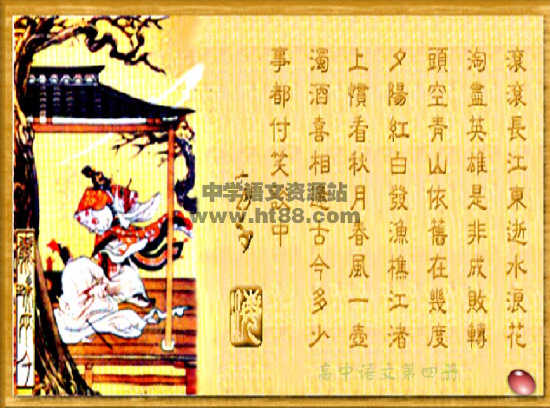 滾滾長江東逝水浪花
淘盡英雄是非成敗轉
頭空青山依舊在幾度
夕陽紅白發漁樵江渚
上慣看秋月春風一壺
濁酒喜相逢古今多少
事都付笑談中
中学语文资源站
www.ht88.com
高中语文第四册